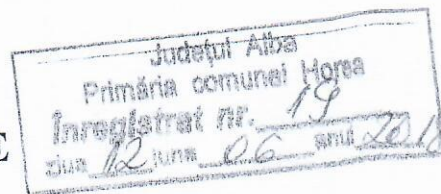 Județul Alba
Primăria comunei Horea
Înregistrat nr. 19
ziua 12 luna 06 anul 2018
E